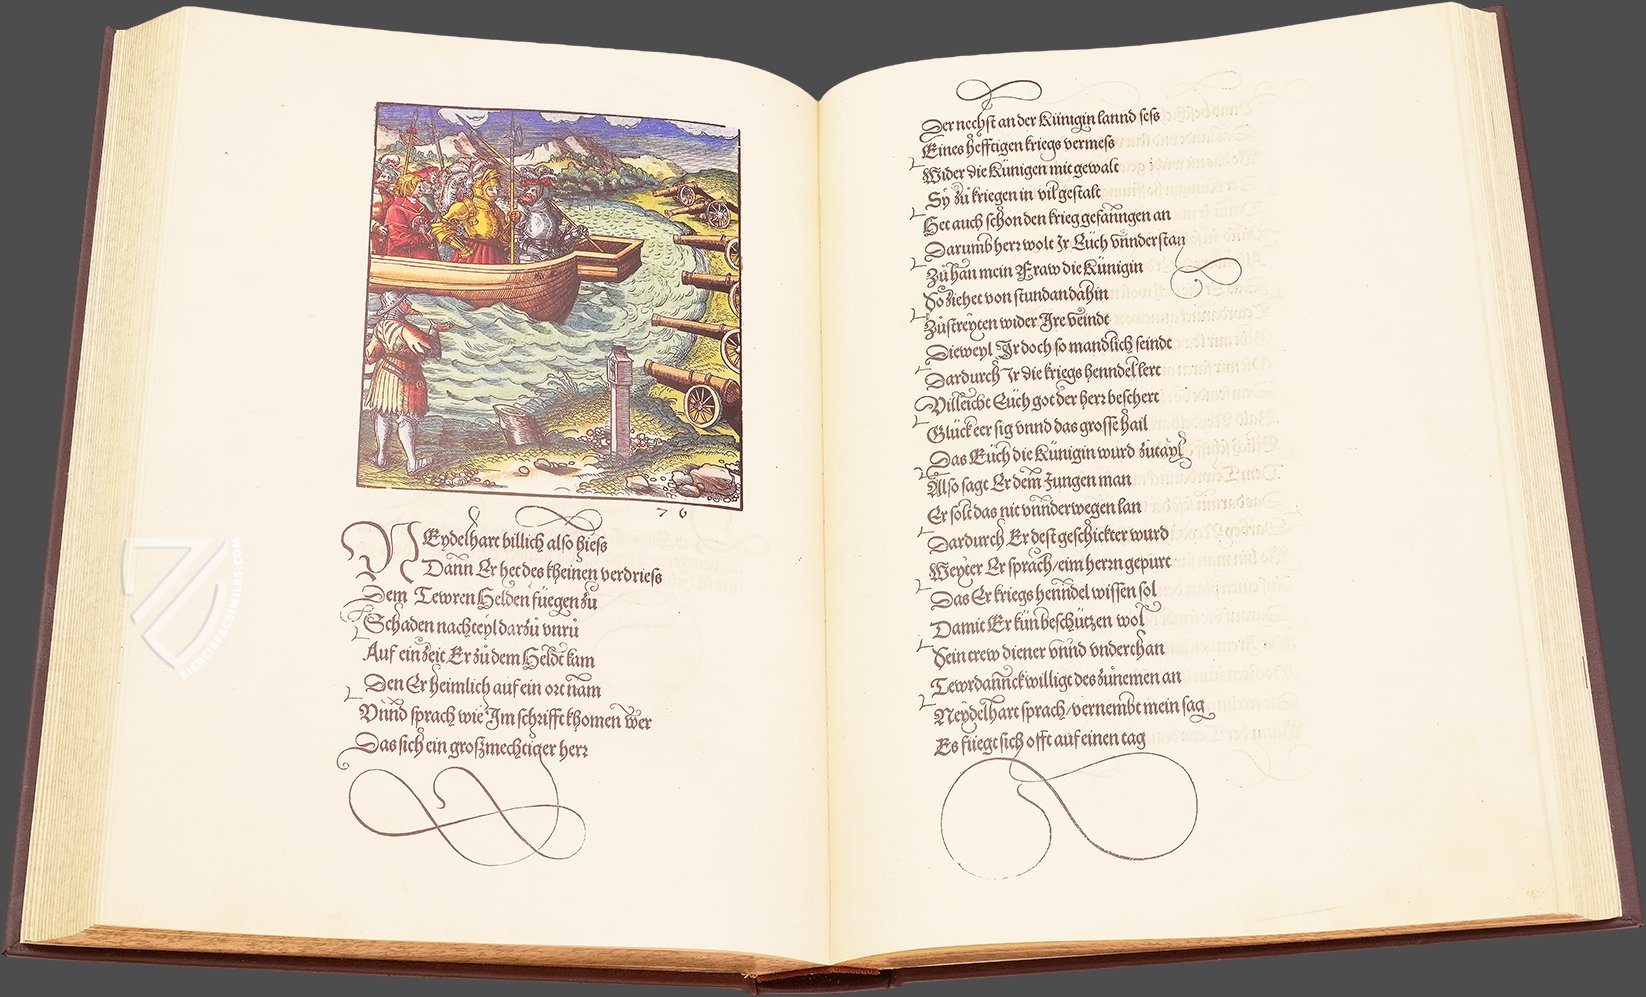 76
NEydelhart billich also hiess
Dann Er het des kheinen verdriess
Dem Tewren Helden füegen zů
Schaden nachteyl darzů vnrů
Auf ein zeit Er zů dem Heldt kam
Den Er heimlich auf ein ort nam
Vnnd sprach wie Im schrifft khomen wer
Das sich ein großmechtiger herr
Der nechst an der Künigin lannd sess
Eines hefftigen kriegs vermess
Wider die Künigen mit gewalt
Sy zů kriegen in vil gestalt
Het auch schon den krieg gefanngen an
Darumb herr wolt Ir Euch vnnderstan
Zů han mein Fraw die Künigin
So ziehet von stundan dahin
Zůstreyten wider Ire veindt
Dieweyl Ir doch so mandlich seindt
Dardurch Ir die kriegs henndel lert
Villeicht Euch got der herr beschert
Glück eer sig vnnd das grosse hail
Das Euch die Künigin wurd zutayl
Also sagt Er dem Jungen man
Er solt das nit vnnderwegen lan
Dardurch Er dest geschickter wurd
Weyter Er sprach/eim herrn gepurt
Das Er kriegs henndel wissen sol
Damit Er kün beschützen wol
Sein trew diener vnnd vnderthan
Tewrdannck willigt des zůnemen an
Neydelhart sprach/vernembt mein sag
Es füegt sich offt auf einen tag
ZIEREISFACSIMILES.COM